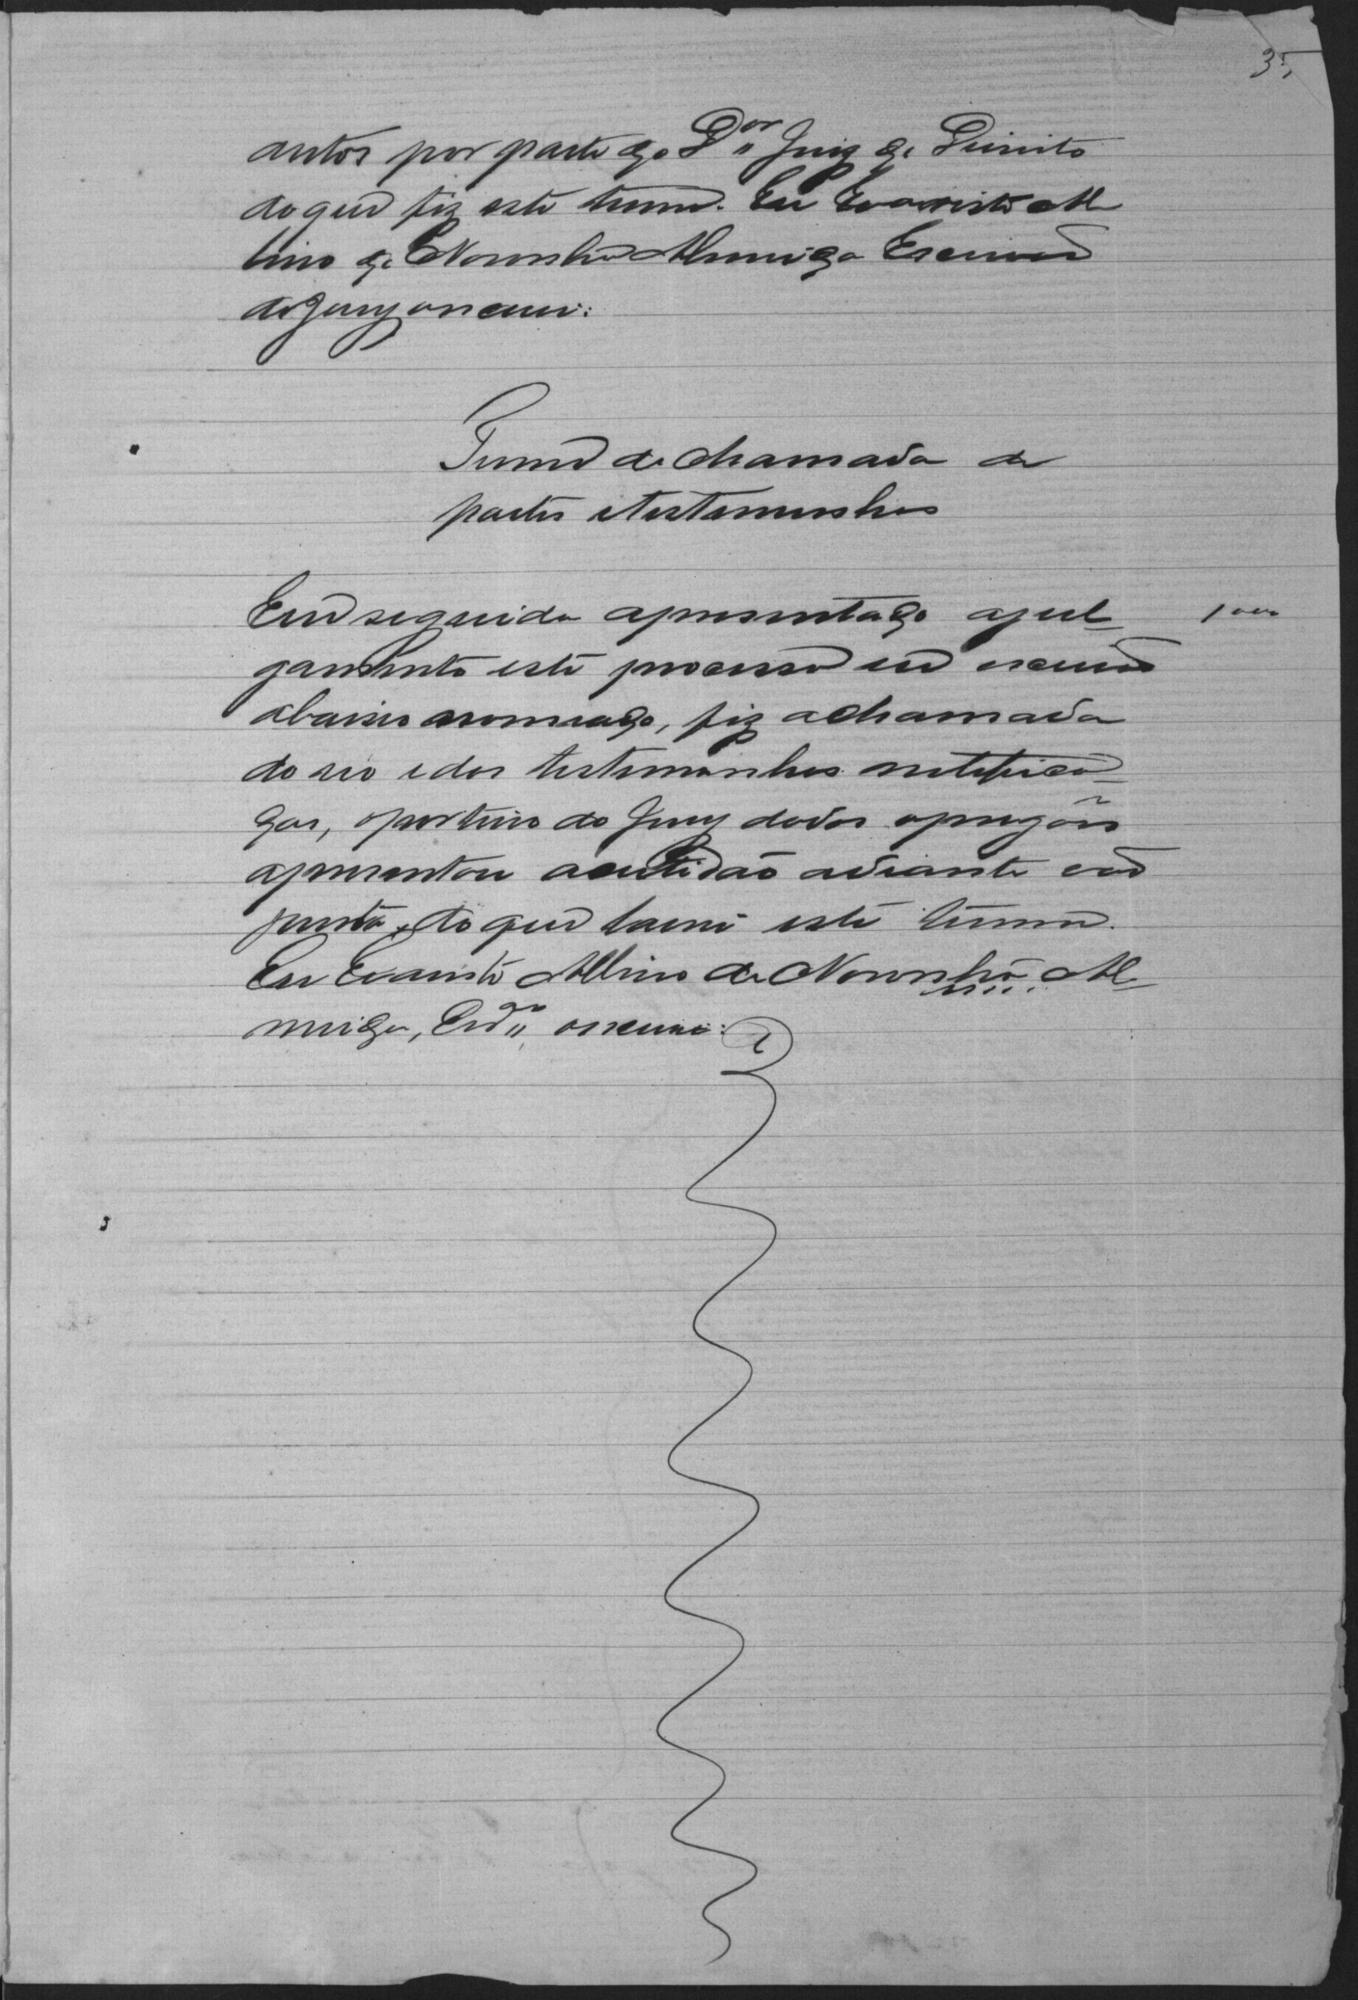 35
autos por parte do Dor Juiz de Direito
do que fiz este termo. Eu Evaristo Al
bino de Noronha Almeida Escrivão
do Jury escrevi.
Termo de chamada de
partes e testemunhas
Em seguida apresentado a jul-
gamento este processo eu escrivão
abaixo nomeado, fiz a chamada
do reo e das testemunhas notifica-
das, o porteiro do Jury dados os pregões
apresentou a certidão adiante
junta, do que lavrei este termo.
Eu Evaristo Albino de Noronha Al-
meida, Escrivão o escrevi: